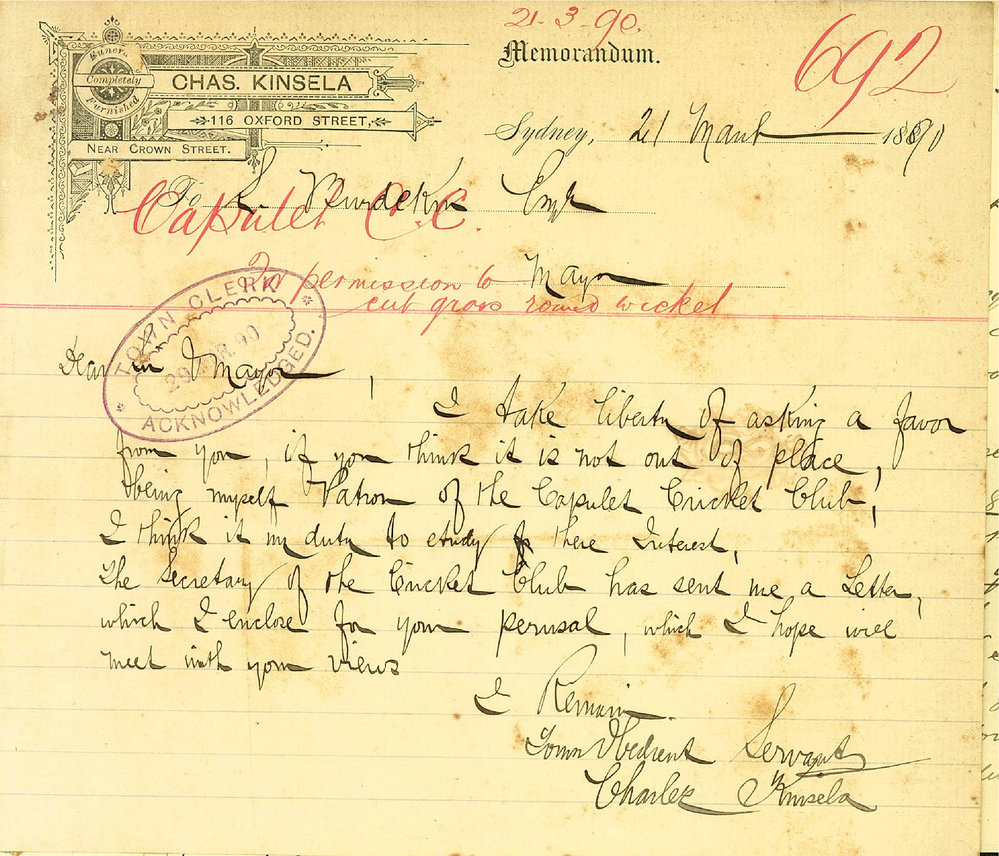 21-3-90.
Memorandum.
692
Funerals
Completely
Furnished
CHAS. KINSELA
116 OXFORD STREET,
NEAR CROWN STREET.
Sydney, 21 March 1890
To S. Burdekin Esqr
Capulet C.C.
Mayor
For permission to
cut grass round wicket
TOWN CLERK
29 MAR. 90
ACKNOWLEDGED.
Dear Sir Mayor
I take liberty of asking a favor
from you, if you think it is not out of place,
being myself Patron of the Capulet Cricket Club,
I think it my duty to study there Interest,
The Secretary of the Cricket Club has sent me a Letter,
which I enclose for your perusal, which I hope will
meet with your views
I Remain
Your Obedient Servant
Charles Kinsela